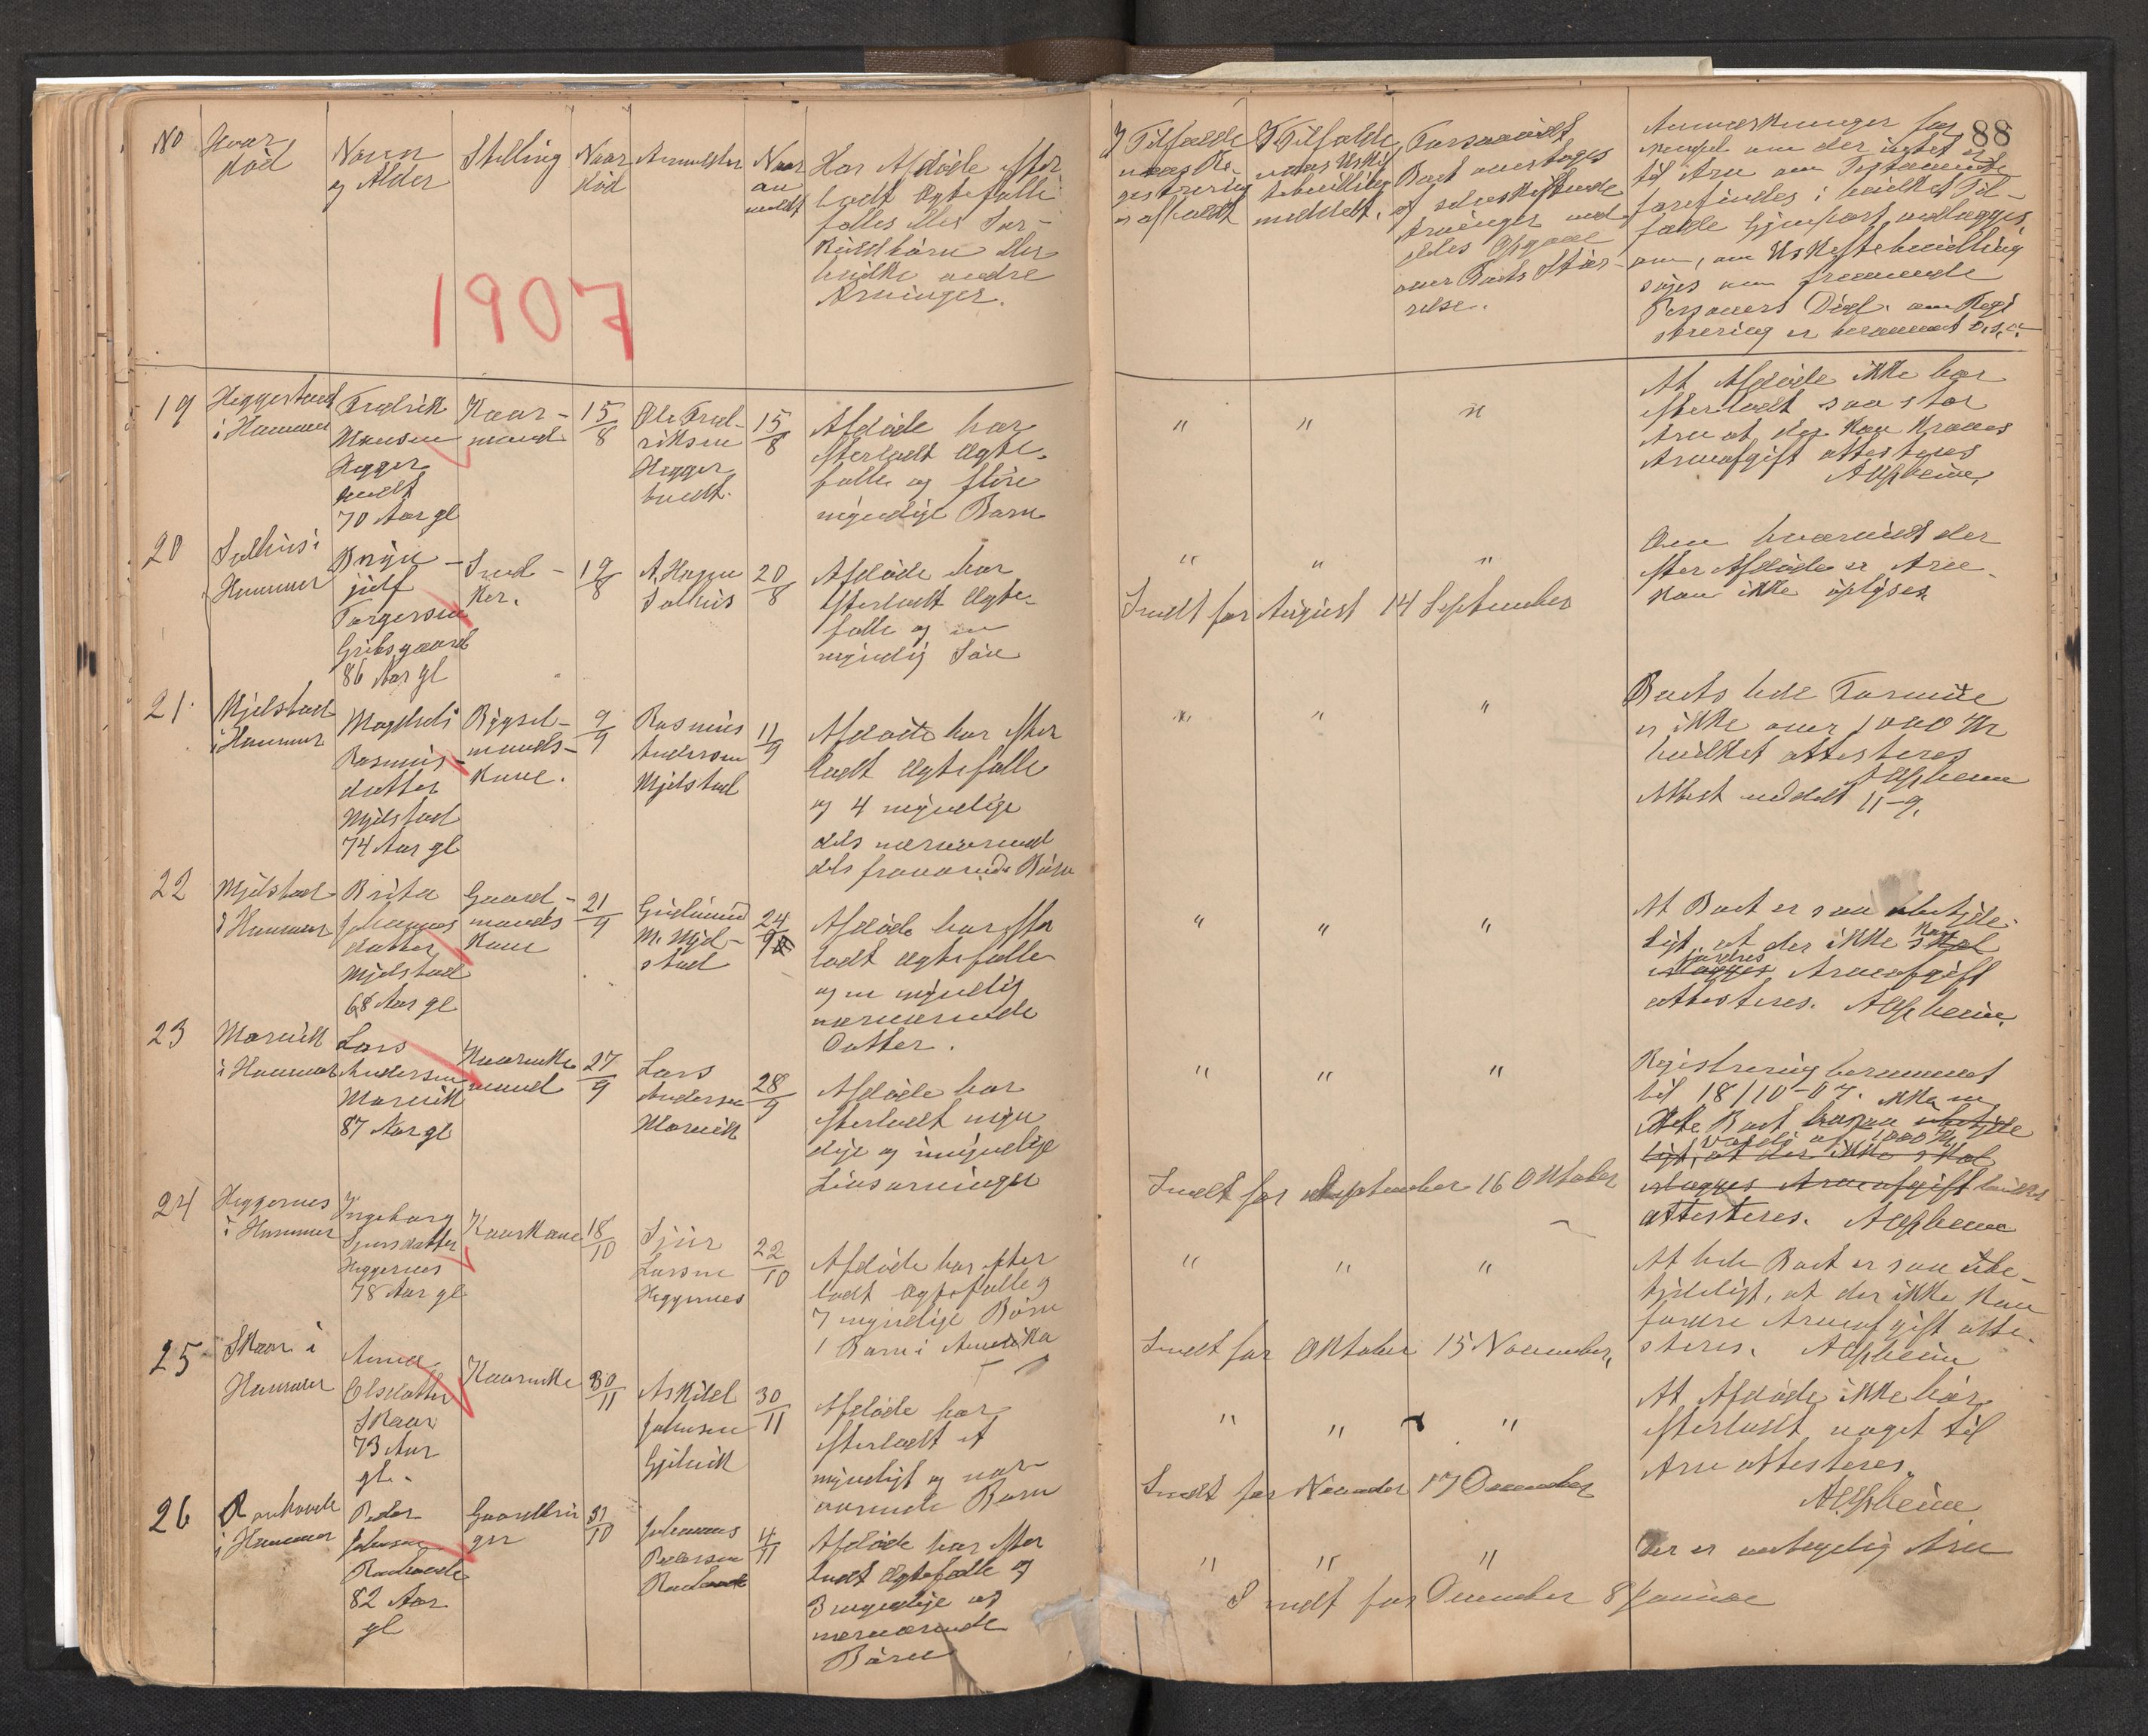 88
No
Hvor
död
Navn
og Alder
Stilling
Naar
död
Anmelder
Naar
an
meldt
Har Afdöde efter
ladt Ægtefælle
fælles eller Sær-
kuldbörn eller
hvilke andre
Arvinger.
I Tilfælde
naar Re
gistrering
er afholdt
I Tilfælde
naar Uskif
tebevilling
meddelt.
Forsaavidt
Boet overtages
af selvskiftende
Arvinger med
deles Opgave
over Boets Stör-
relse.
Anmærkninger for
Exempel om der intet er
til Arv om Testamente
forefindes i hvilket Til-
fælde Gjenpart vedlægges
om, om Uskiftebevilling
söges om fraværende
Personers Opl. om Regi
strering er berammet o.s.v.
1907
19
Heggertveit
i Hammer
Fredrik
Hansen
Hegger
tvedt
70 Aar gl
Kaar-
mand
15/8
Ole Fred-
riksen
Hegger
tvedt.
15/8
Afdöde har
efterladt Ægte-
fælle og flere
myndige Barn
" " "
At Afdöde ikke har
efterladt saa stor
Arv at der kan kræves
Arveafgift attesteres
20
Salhus i
Hammer
Bryn-
julf
Torgersen
Gribsgaard
86 Aar gl
Snid-
ker.
19/8
A. Hagen
Salhus
20/8
Afdöde har
efterladt Ægte-
fælle og en
myndig Sön
" " "
Om hvorvidt der
efter Afdöde er Arv
kan ikke oplyses
Sendt for August 14 September
21
Mjelstad
i Hammer
Magdeli
Rasmus-
datter
Mjelstad
74 Aar gl
Bygsel-
mands-
Kone.
9/9
Rasmus
Andersen
Mjelstad
11/9
Afdöde har efter
ladt Ægtefælle
og 4 myndige
dels nærværend
dels fraværende Börn
" " "
Boets hele Formue
er ikke over 1000 Kr
hvilket attesteres
Attest uddelt 11-9.
22
Mjelstad
i Hammer
Brita
Johannes
datter
Mjelstad
68 Aar gl
Gaard-
mands
Kone
21/9
Gudmund
M. Mjel-
stad
24/9
Afdöde har efter
ladt Ægtefælle
og en myndig
nærværende
Datter.
" " "
At Boet er saa ubetyde-
ligt, at der ikke skal kan
erlægges fordres Arveafgift
attesteres.
23
Morvik
i Hammer
Lars
Andersen
Morvik
87 Aar gl
Kaarenke
mand
27/9
Lars
Andersen
Morvik
28/9
Afdöde har
efterladt myn
dige og umyndige
Livsarvinger
" " "
Registrering berammet
til 18/10-07.
ligt, at der ikke skal
erlægges Arveafgift hvilket
attesteres.
Sendt for September 16 Oktober
24
Heggernes
i Hammer
Ingeborg
Sjursdatter
Heggernes
78 Aar gl
Kaarkone
18/10
Sjur
Larsen
Heggernes
22/10
Afdöde har efter
ladt Ægtefælle og
7 myndige Börn
1 Barn i Amerika
" " "
At hele Boet er saa ube-
tydeligt, at der ikke kan
fordre Arveafgift atte-
steres.
Sendt for Oktober 15 November.
25
Skaar i
Hammer
Anna
Olsdatter
Skaar
73 Aar
gl.
Kaarenke
30/11
Askild
Johnsen
Gjelvik
30/11
Afdöde har
efterladt et
myndigt og nær-
værende Barn
" " "
At Afdöde ikke har
efterladt noget til
Arv attesteres.
Sendt for November 17 December
26
i Hammer
Peder
Johnsen
82 Aar
gl
Gaardbru
ger
31/10
Johannes
Pedersen
4/11
Afdöde har efter
ladt Ægtefælle og
3 myndige og
nærværende
Börn
" " "
Der er ubetydelig Arv
Sendt for December 8 Januar